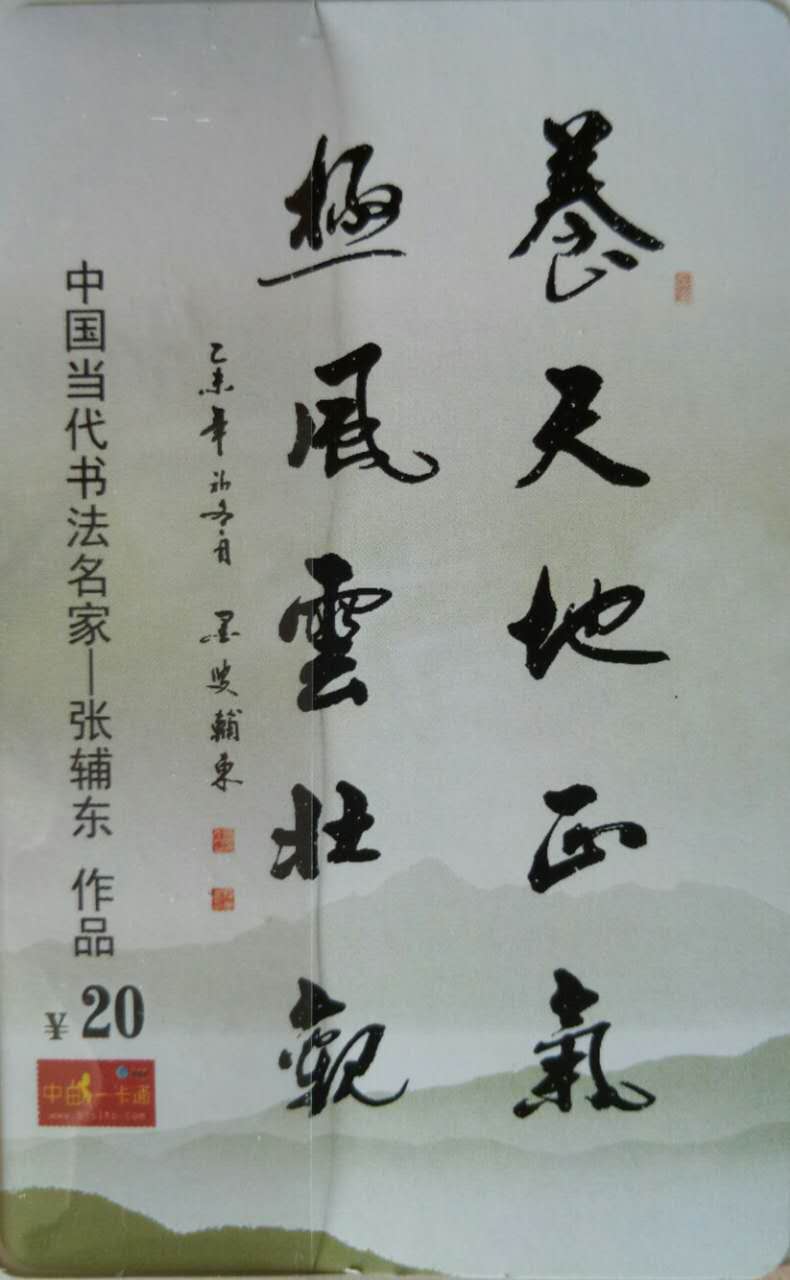 養天地正氣
極風雲壯觀
乙未年初冬月 墨叟輔東
中国当代书法名家—张辅东 作品
¥20
中由一卡通